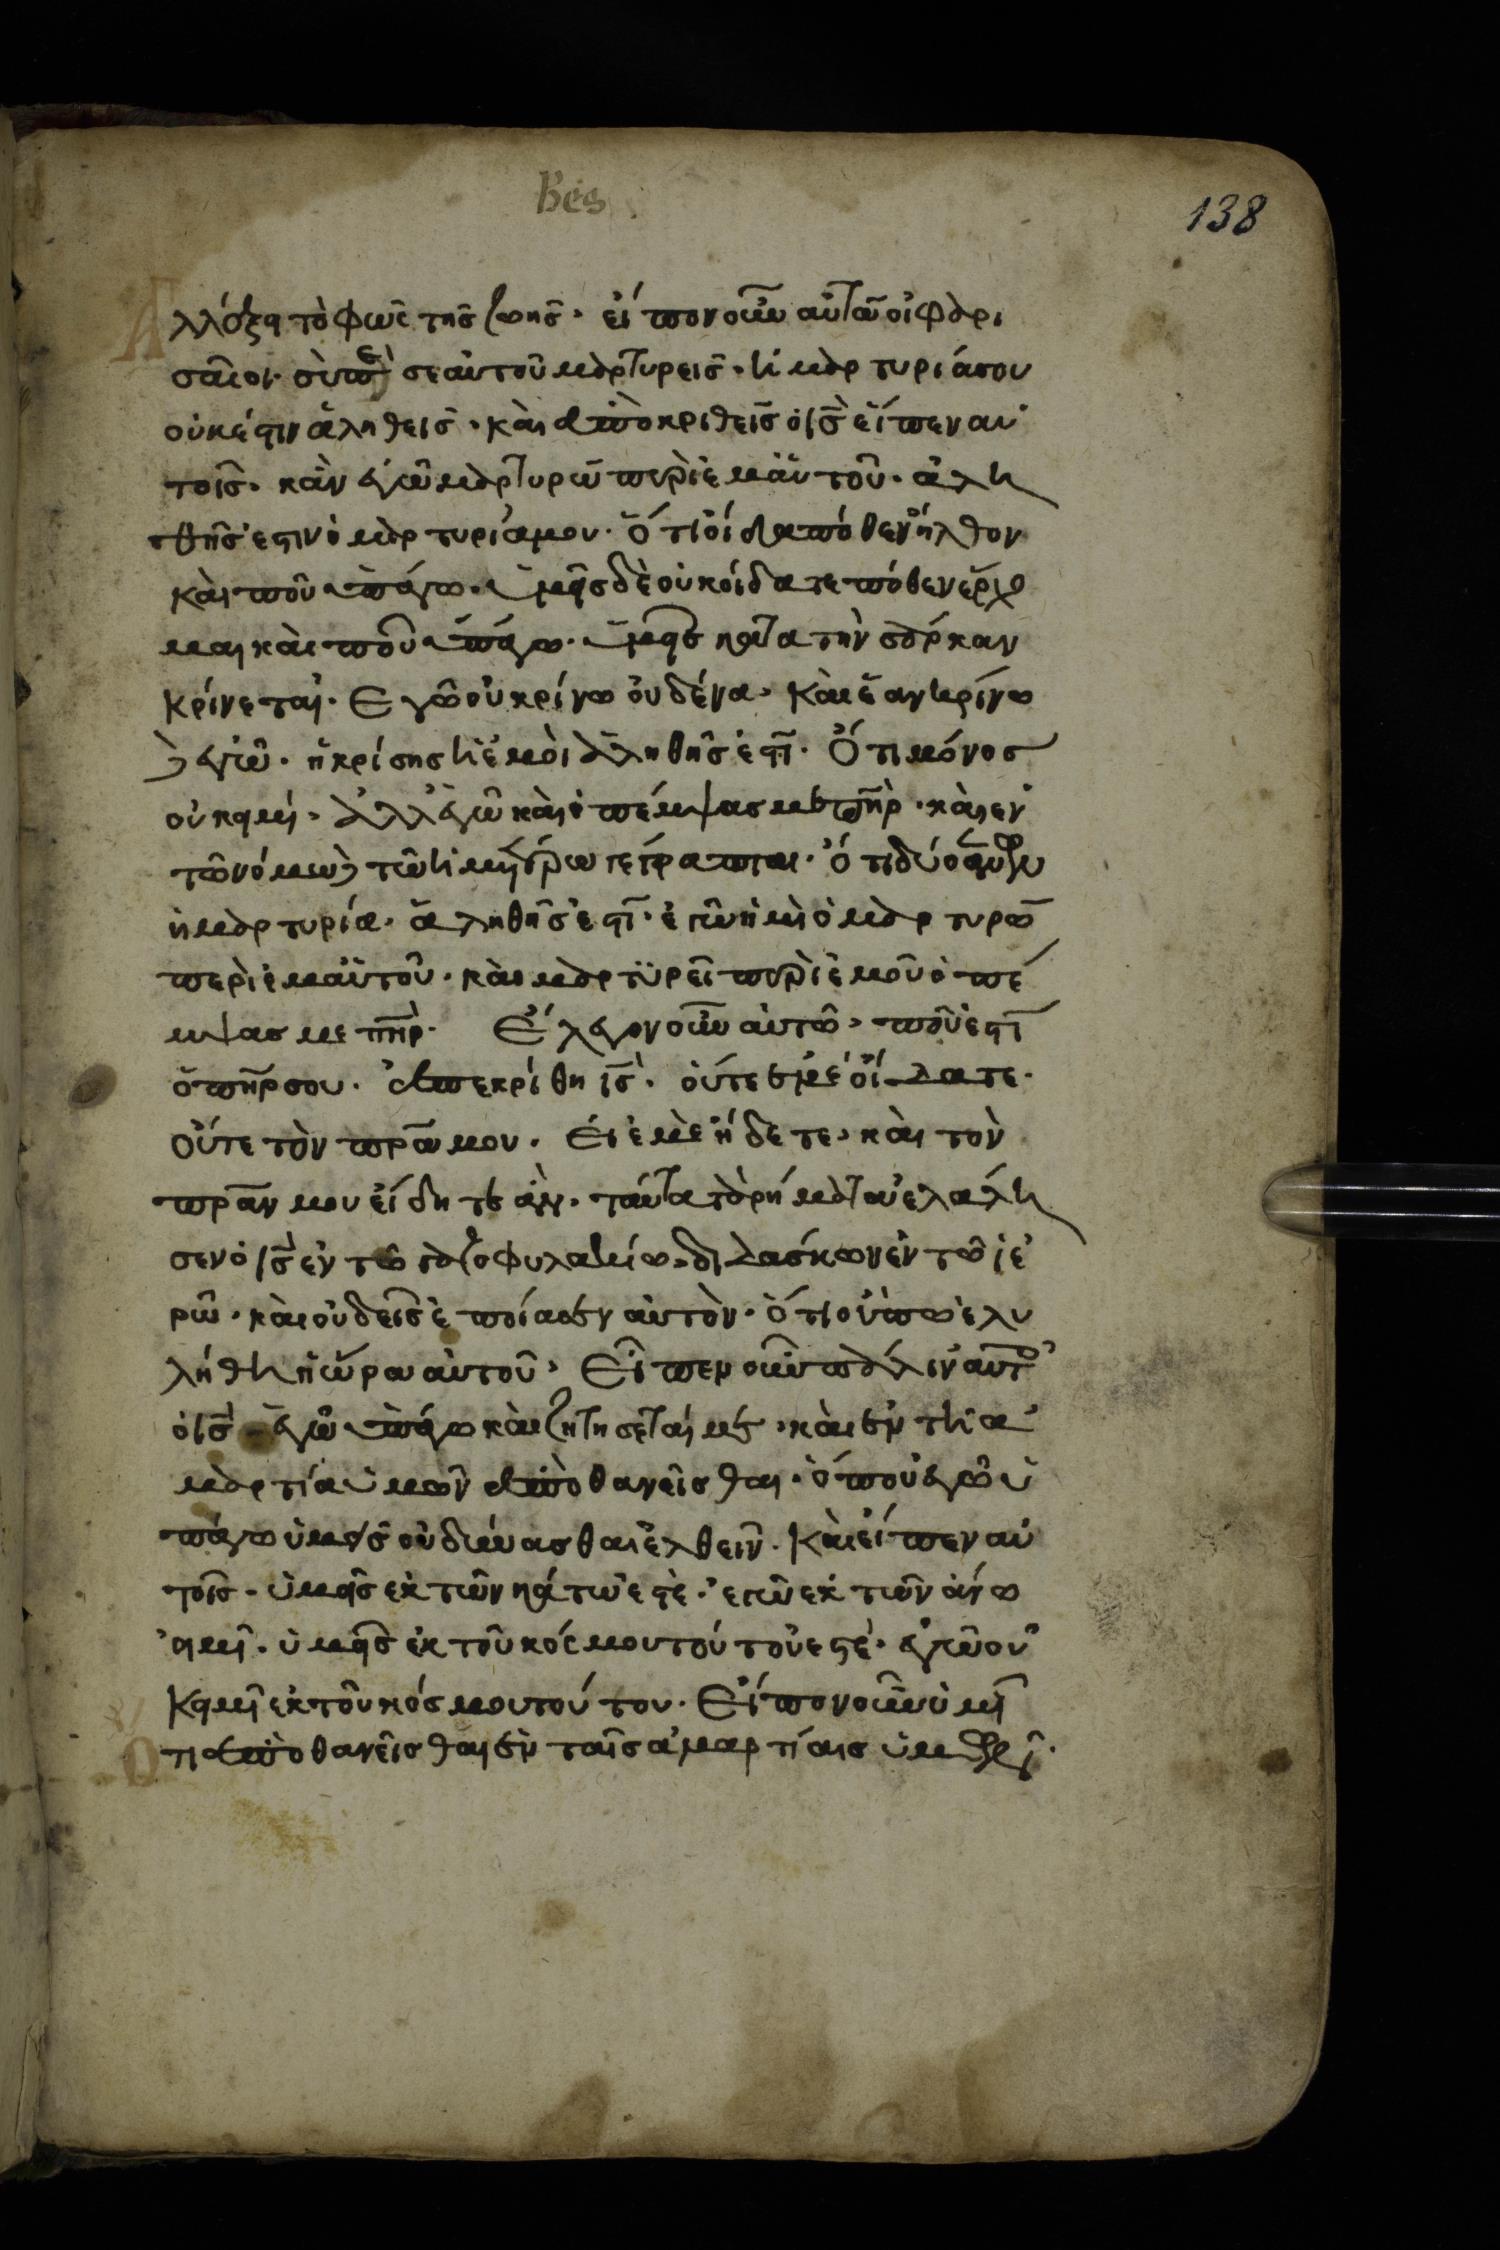 138
λλόξει τὸ φῶς τῆς ζωῆς· εἶπον οὖν αὐτῶ οἱ φαρι
σαῖοι· σὺ περὶ σεαυτοῦ μαρτυρεῖς· ἡ μαρτυρία σου
οὐκ έστιν ἀληθεις· καὶ ἀποκριθεὶς ὁ ις εἶπεν αὐ
τοῖς· κἂν ἐγὼ μαρτυρῶ περὶ ἐμαυτοῦ· ἀλη
θῆς ἐστιν ὁ μαρτυρία μου· ὅτι οἶδα πόθεν ἦλθον
καὶ ποῦ ὑπάγω· ὑμεῖς δὲ οὐκ οἴδατε πόθεν ἔρχο
μαι καὶ ποῦ ὑπάγω· ὑμεῖς κατα τὴν σάρκαν
κρίνεται· Εγὼ οὐ κρίνω οὐδένα· καὶ ἐαν κρίνω
δὲ ἐγὼ· ἡ κρίσης ἡ ἐμὸι ἀληθῆς ἐστι· Ὅτι μόνος
οὐκ ειμί· ἀλλ ἐγὼ καὶ ὁ πέμψας με πηρ· καὶ εν
τῶ νόμω δὲ τῶ ἡμετέρω γέγραπται· ὅτι δύο ἀνων
ἡ μαρτυρία· ἀληθῆς ἐστι· ἐγὼ ἡμὶ ὁ μαρτυρῶ
περὶ ἐμαυτοῦ· καὶ μαρτυρεῖ περὶ ἐμοῦ ὁ πέ
μψας με πηρ· Έλεγον οὖν αὐτῶ· ποῦ ἐστι
ὁ πηρ σου· ἀπεκρίθη ις· οὔτε ἐμὲ οἴδατε·
οὔτε τὸν πραν μου· Ει ἐμὲ ήδετε· καὶ τὸν
πραν μου εἴδητε ἀν· ταῦτα τὰ ρήματα ἐλάλη
σεν ὁ ις ἐν τῶ γαζοφυλακίω· διδάσκων ἐν τῶ ἱε
ρῶ· καὶ οὐδεὶς ἐποίασεν αὐτὸν· ὅτι οὔπω ἐλυ
λήθη ἡ ὥρα αὐτοῦ· Εἶπεν οὖν πάλιν αὐτο
ὁ ις· ἐγὼ ὑπάγω καὶ ζητησεται με· καὶ ἐν τη α
μαρτία ὑμῶν ἀποθανεῖσθαι· ὅπου ἐγὼ ὑ
πάγω ὑμεῖς οὐ δύνασθαι ἐλθεῖν· Καὶ εἶπεν αὐ
τοῖς· ὑμεῖς ἐκ τῶν κάτω ἐστὲ· ἐγὼ ἐκ τῶν ἀνω
ειμι· ὑμεῖς ἐκ τοῦ κόσμου τούτου ἐστέ· ἐγὼ οὐ
κ ειμὶ ἐκ τοῦ κόσμου τούτου· Εἶπον οὖν ὑμῖ
τι ἀποθανεῖσθαι ἐν ταῖς ἁμαρτίαις ὑμῶν